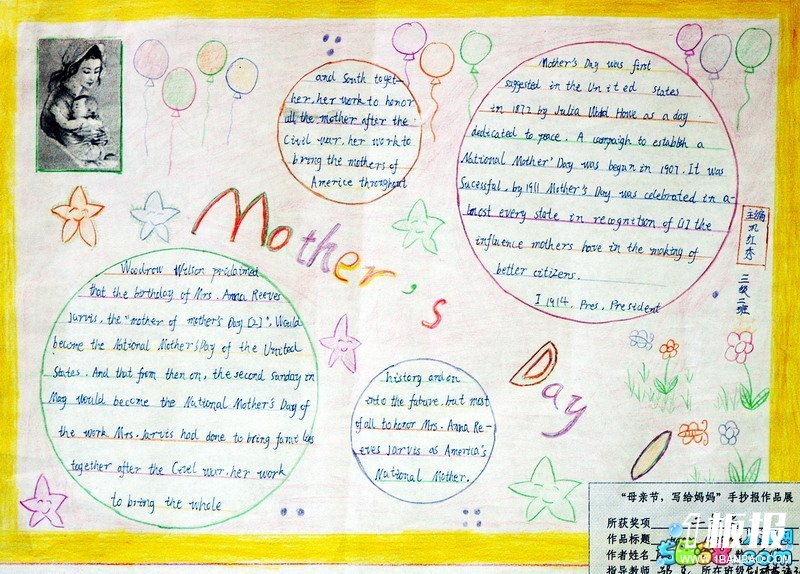 Mother's Day
Mother's Day was first
suggested in the United states
in 1872 by Julia Howe as a day
dedicated to peace. A compaign to establish a
National Mother' Day was began in 1907. It was
Sucessful, by 1911 Mother's Day was celebrated in a-
lmost every state in recognition of [1] the
influence mothers have in the making of
better citizens.
I 1914. Pres. President
Woodrow Welson proclaimed
that the birthday of Mrs. Anna Reeves
Jarvis, the "mother of mother's Day [2]", Would
become the National Mother'sDay of the United
States. And that from then on, the second sunday in
May would become the National Mother's Day of
the work Mrs. Jarvis had done to bring
together after the war. her work
to bring the whole
and South toget-
her. her work to honor
all the mother after the
Civil war. her work to
bring the mothers of
Americe throughout
history and on
into the future. but most
of all to honor Mrs. Anna Re-
eves Jarvis as America's
National Mother.
主编
红
三级二班
“母亲节，写给妈妈”手抄报作品展
所获奖项
作品标题
作者姓名
指导教师 所在班级
板报网
WWW.1BANBAO.COM